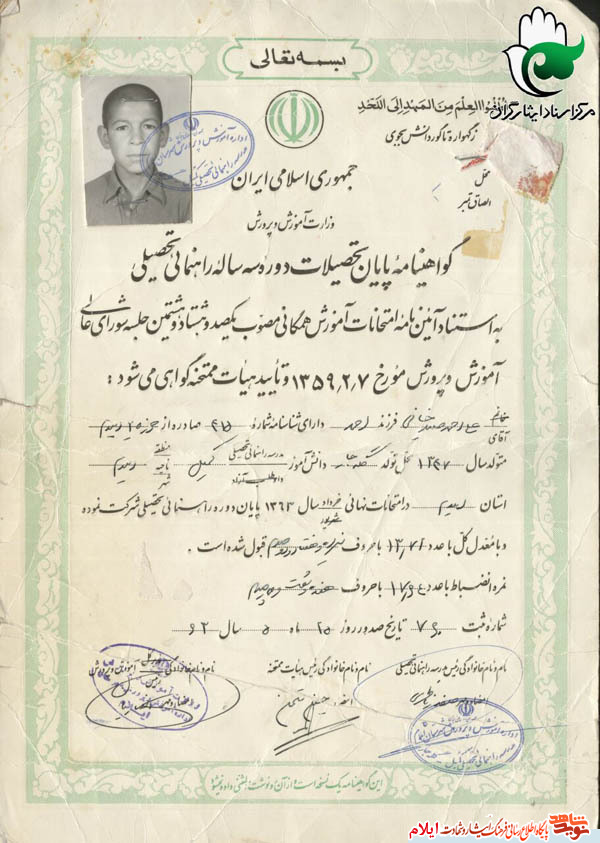 بسمه تعالی
مرکز اسناد ایثارگران
اطلبوا العلم من المهد الی اللحد
ز گهواره تا گور دانش بجوی
محل
الصاق تمبر
جمهوری اسلامی ایران
وزارت آموزش و پرورش
گواهینامهٔ پایان تحصیلات دورهٔ سه سالهٔ راهنمائی تحصیلی
به استناد آئین نامهٔ امتحانات آموزش همگانی مصوب یکصد و هشتاد و هشتمین جلسه شورای عالی
آموزش و پرورش مورخ ۱۳۵۹٫۲٫۷ و تأیید هیأت ممتحنه گواهی می شود :
خانم
آقای
فرزند احمد دارای شناسنامه شمارهٔ صادره از حوزه
متولد سال ۱۳۴۷ محل تولد دانش آموز مدرسه راهنمائی تحصیلی کمیل منطقه
داوطلب آزاد ناحیه
شهر
استان در امتحانات نهائی خرداد سال ۱۳۶۲ پایان دوره راهنمائی تحصیلی شرکت نموده
شهریور
و با معدل کل با عدد ۱۳٫۷۲ با حروف قبول شده است .
نمره انضباط با عدد با حروف
شمارهٔ ثبت ۷۶۰ تاریخ صدور روز ۲۵ ماه ۵ سال ۶۲
نام و نام خانوادگی رئیس مدرسه راهنمائی تحصیلی
نام و نام خانوادگی رئیس هیأت ممتحنه
نام و نام خانوادگی رئیس آموزش و پرورش
این گواهینامه یک نسخه است و از آن رونوشت یا المثنی داده نمیشود
نوید شاهد
پایگاه اطلاع رسانی فرهنگ ایثار و شهادت ایلام